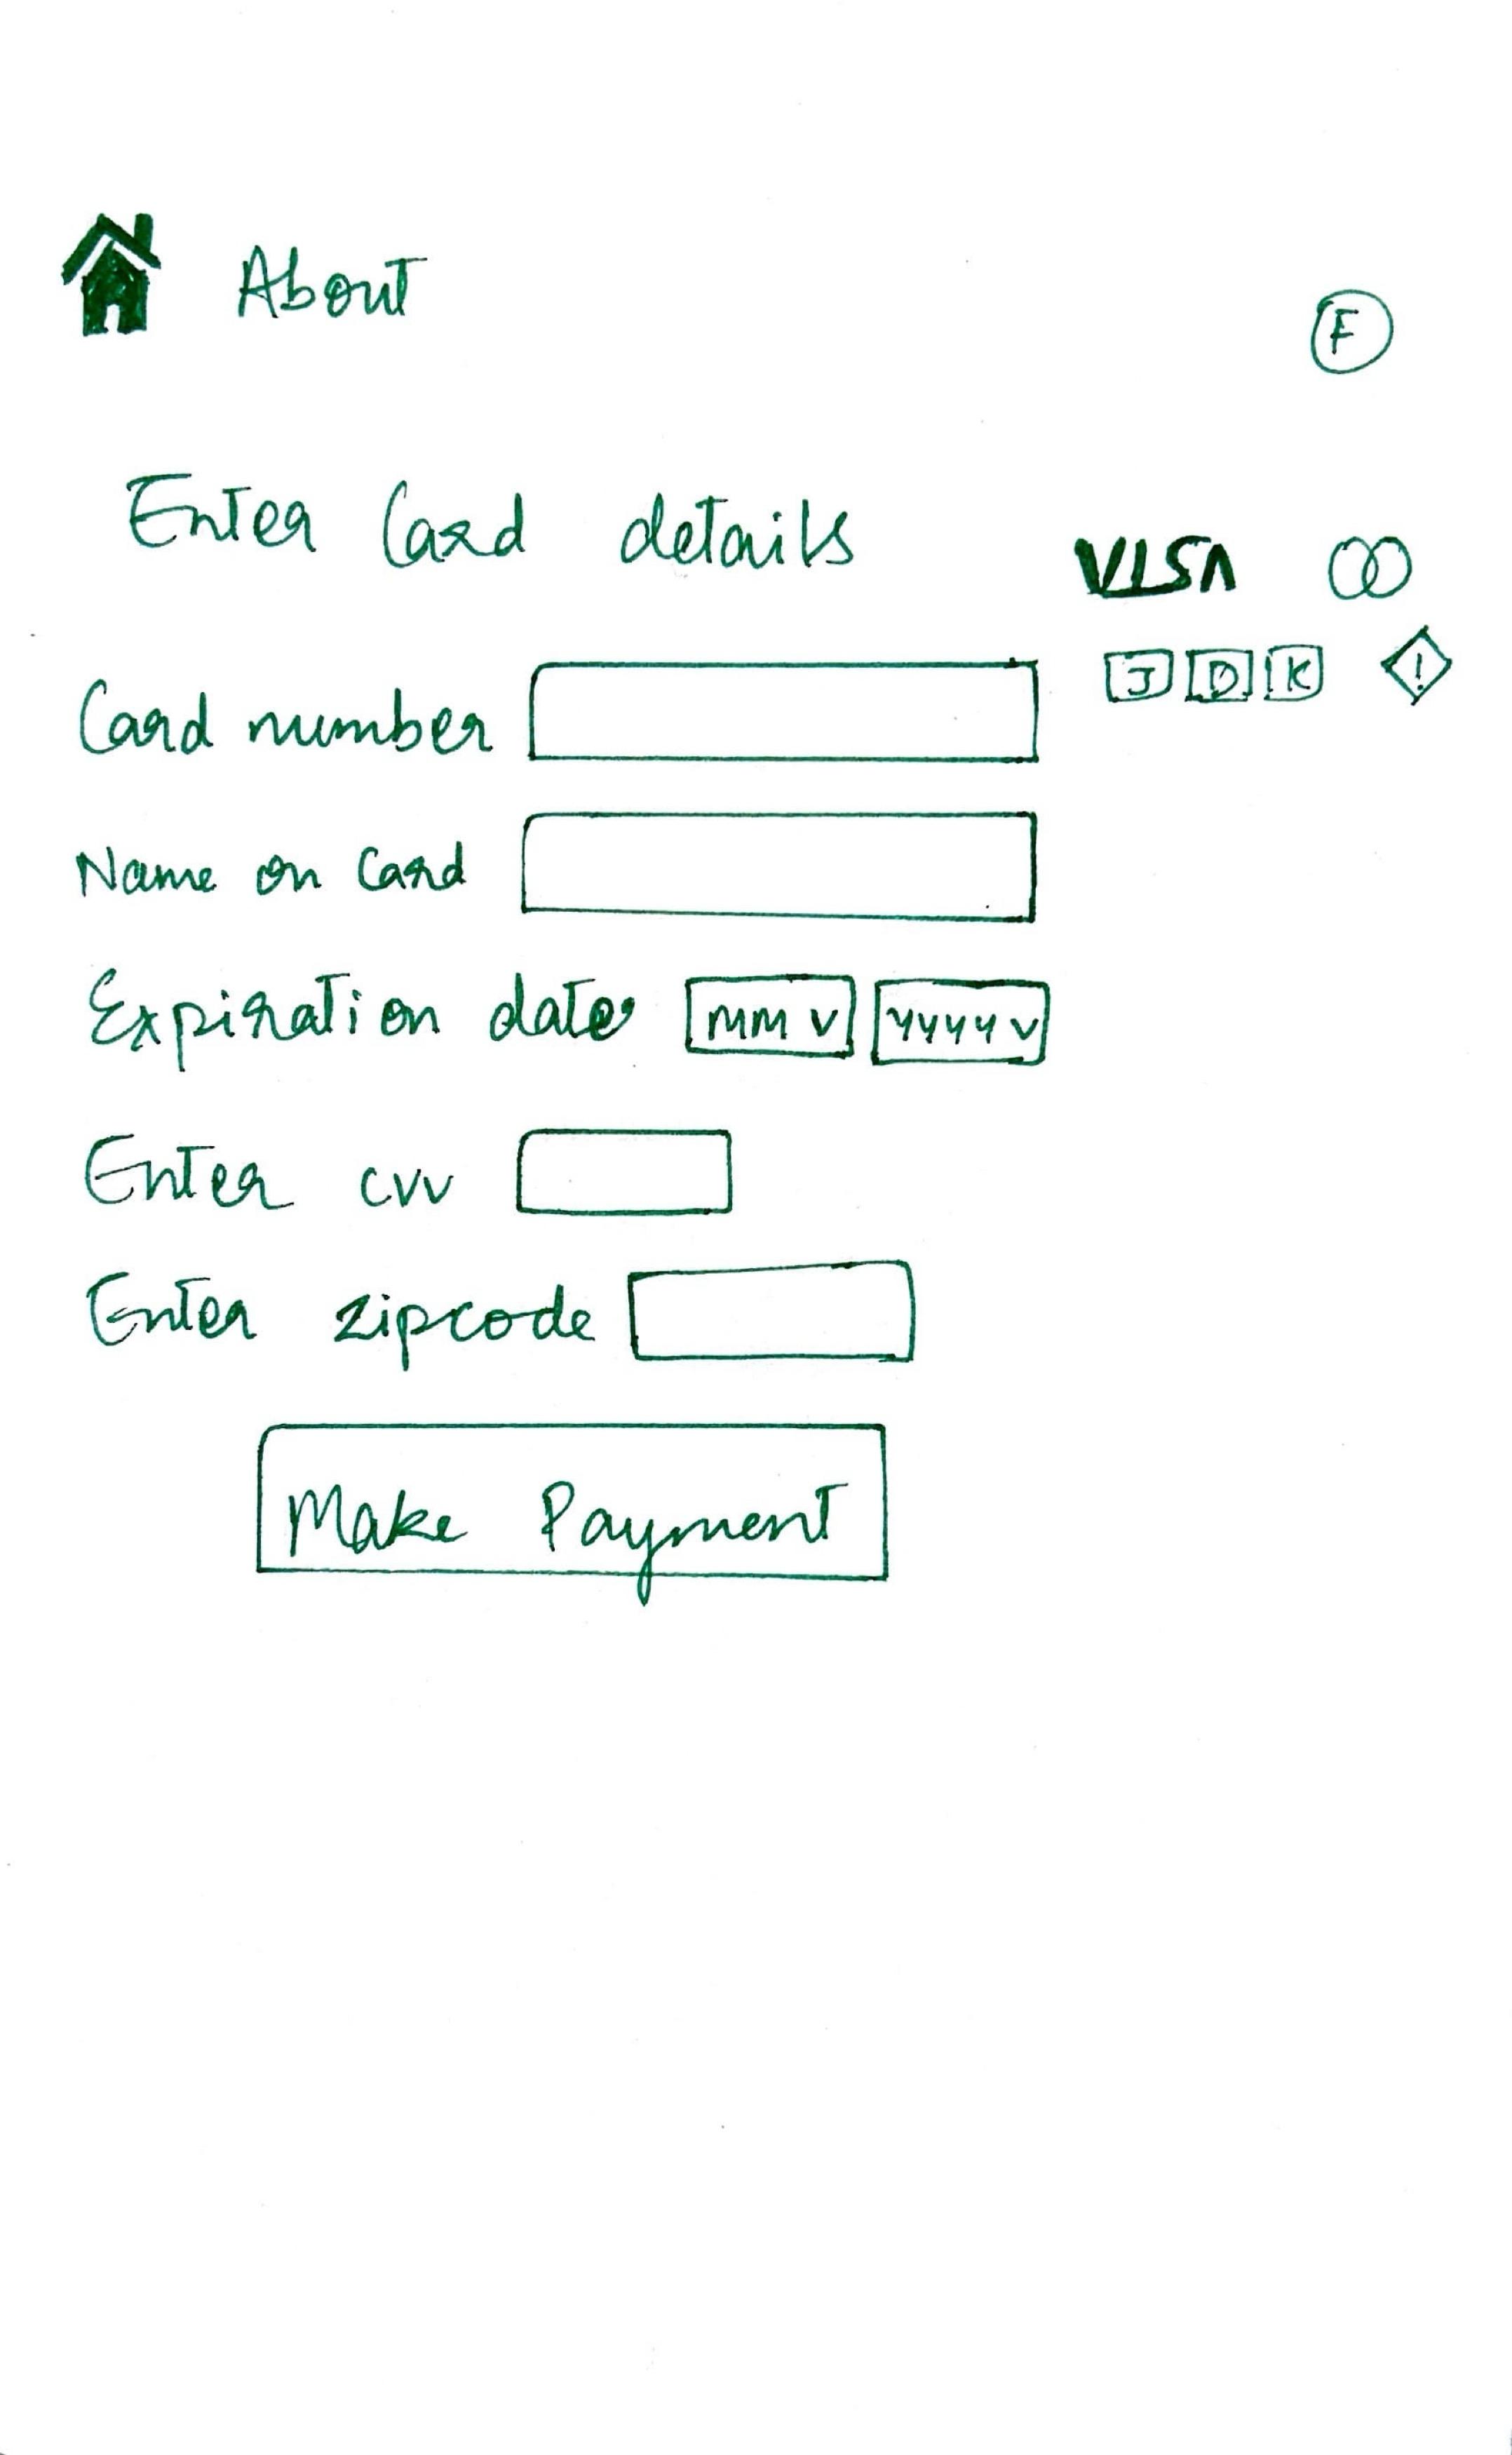 About
F
Enter Card details
VISA
J D K !
Card number
Name on Card
Expiration date MM v YYYY v
Enter cvv
Enter zipcode
Make Payment